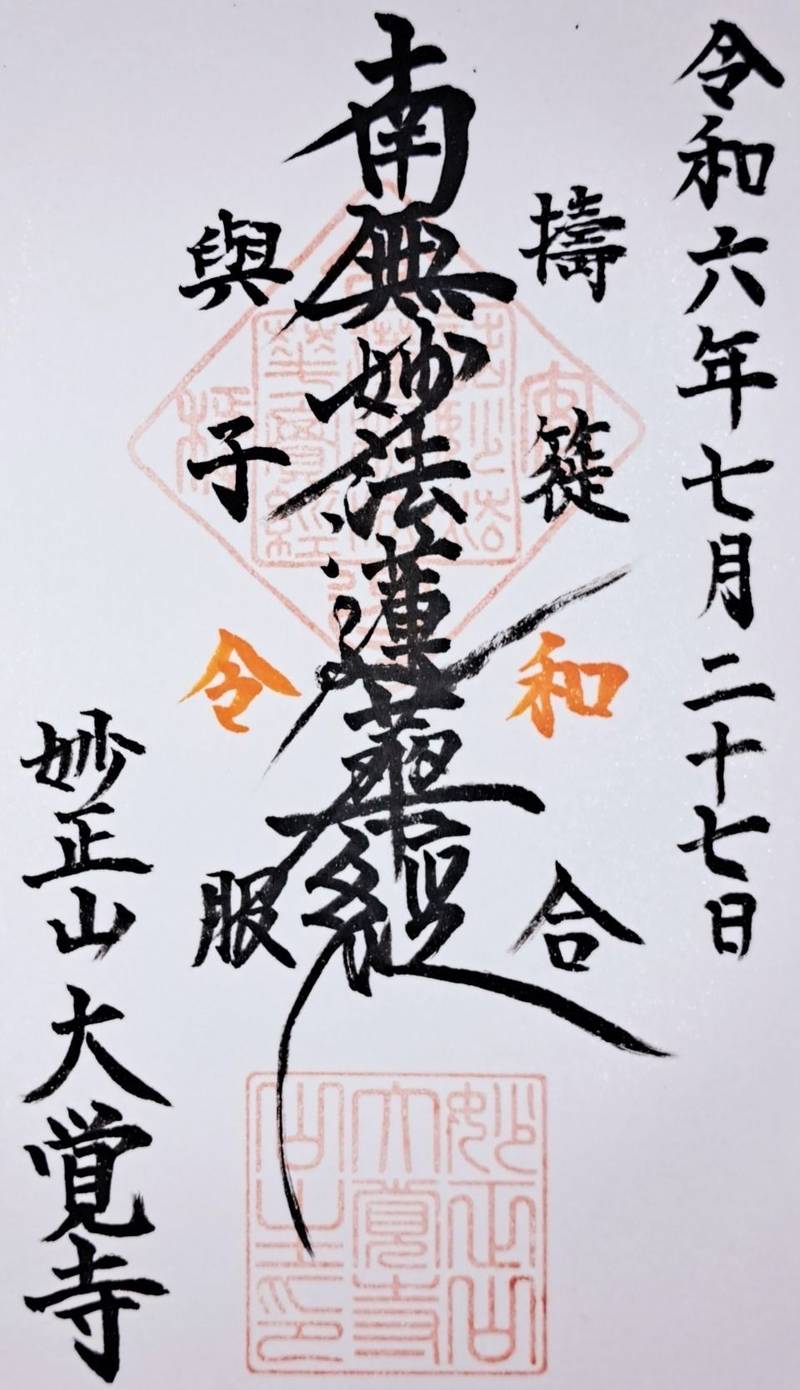 令和六年七月二十七日
擣簁和合
南無妙法蓮華経
與子令服
妙正山 大覚寺
妙正山
大覚寺